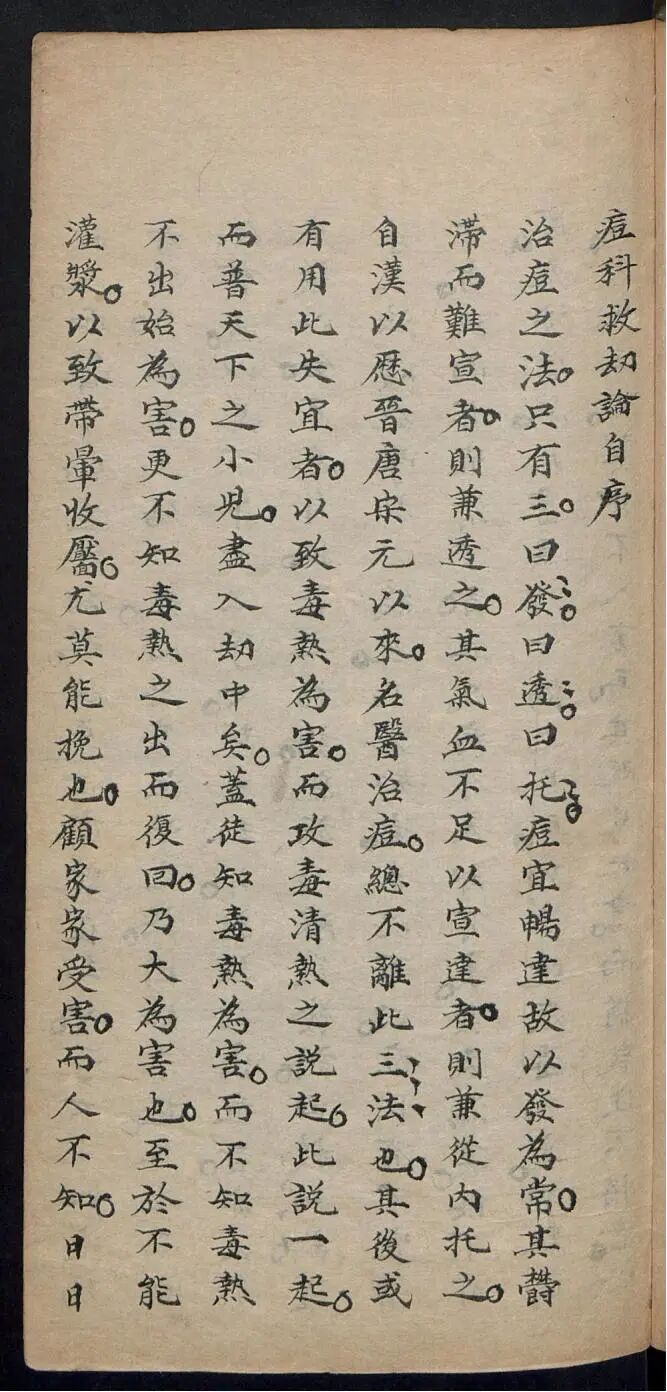 痘科救劫論自序
治痘之法。只有三。曰發。曰透。曰托。痘宜暢達故以發為常。其欝
滯而難宣者。則兼透之。其氣血不足以宣達者。則兼從内托之。
自漢以歷晉唐宋元以來。名醫治痘。總不離此三法也。其後或
有用此失宜者。以致毒熱為害。而攻毒清熱之説起。此説一起。
而普天下之小児。盡入劫中矣。蓋徒知毒熱為害。而不知毒熱
不出始為害。更不知毒熱之出而復回。乃大為害也。至於不能
灌漿。以致帶暈收靨。尤莫能挽也。顧家家受害。而人不知。日日